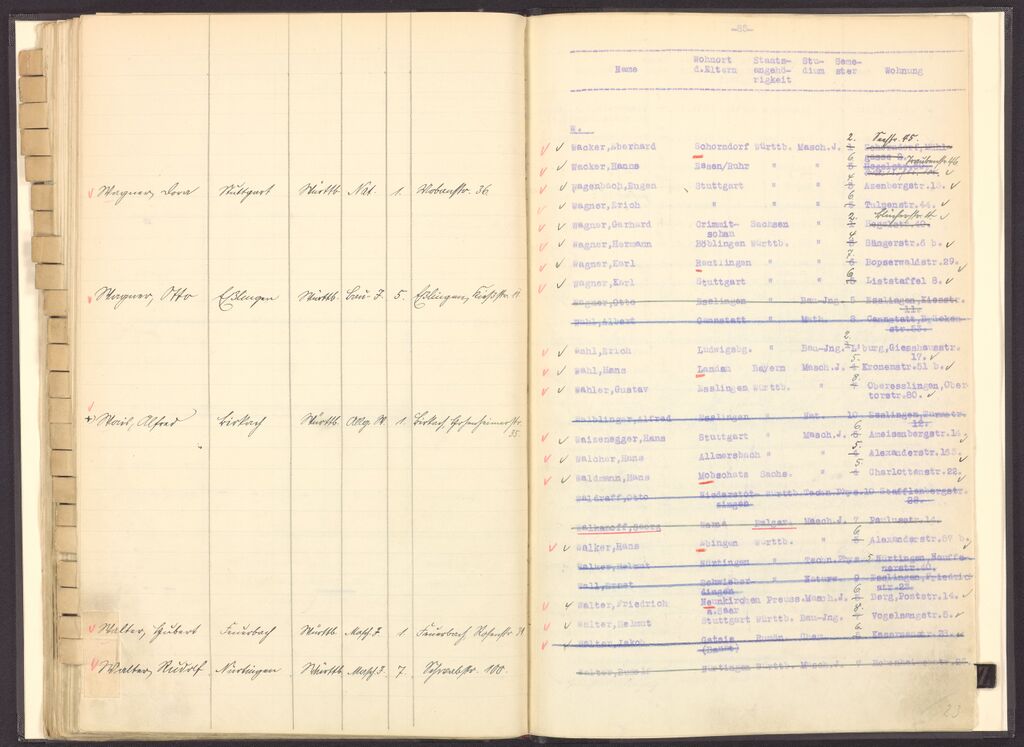 Wagner, Dora Stuttgart Württb. Nat. 1.
Wagner, Otto Eßlingen Württb. Bau-J. 5. Eßlingen,
Alfred Birkach Württb. 1. Birkach, Hohenheimerstr.
35.
Walter, Hubert Feuerbach Württb. Masch. J. 1 Feuerbach
Walter Rudolf Nürtingen Württb. Masch. J. 7. Schwabstr. 100.
-85-
Wohnort Staats- Stu- Seme-
Name d.Eltern angehö- dium ster Wohnung
rigkeit
W.
2. Seestr. 45.
Wacker,Eberhard Schorndorf Württb. Masch.J. 1 Schorndorf,Mühl-
6 gasse 9. Traubenstr. 46
Wacker,Hanns Essen/Ruhr " "
Wagenbach,Eugen Stuttgart " " Azenbergstr.13.
Wagner,Erich " " " Tulpenstr.44.
2.
Wagner,Gerhard Crimmit- Sachsen " 1 Hegelstr.
schau
Wagner,Hermann Böblingen Württb. " Sängerstr.6 b.
Wagner,Karl Reutlingen " " Bopserwaldstr.29.
Wagner,Karl Stuttgart " " Liststaffel 8.
Wagner,Otto Esslingen " Bau-Jng. 5 Esslingen,Kiesstr.
11.
Wahl,Albert Cannstatt " Math. 8 Cannstatt,Brücken-
str.53.
2.
Wahl,Erich Ludwigsbg. " Bau-Jng. L'burg,Giesshausstr.
17.
5.
Wahl,Hans Landau Bayern Masch.J. 4 Kronenstr.51 b.
8.
Wahler,Gustav Esslingen Württb. " Oberesslingen,Ober
torstr.80.
Waiblinger,Alfred Esslingen " Nat. 10 Esslingen,
12.
6
Waizenegger,Hans Stuttgart " Masch.J. 5 Ameisenbergstr.14
5.
Walcher,Hans Allmersbach " " 4 Alexanderstr.153.
5.
Waldmann,Hans Mobschatz Sachs. " 4 Charlottenstr.22.
Waldraff,Otto Niederstot- Württb. Techn.Phys. 10 Stafflenbergstr.
zingen
Walkanoff,Georg Bulgar. Masch.J. 7 Paulusstr.
6
Walker,Hans Ebingen Württb. " 5 Alexanderstr.57 b.
Walker,Helmut Nürtingen " Techn.Phys. 5 Nürtingen,Neuffe-
nerstr.40.
Wall,Ernst Schwieber- " Naturw. 9 Esslingen,Friedric
dingen str.23.
6
Walter,Friedrich Neunkirchen Preuss. Masch.J. 5 Berg,Poststr.14.
a.Saar
8.
Walter,Helmut Stuttgart Württb. Bau-Jng. Vogelsangstr.5.
6
Walter,Jakob Rumän. Chem. 5
(Banat)
Walter,Rudolf Nürtingen Württb. Masch.J.
23